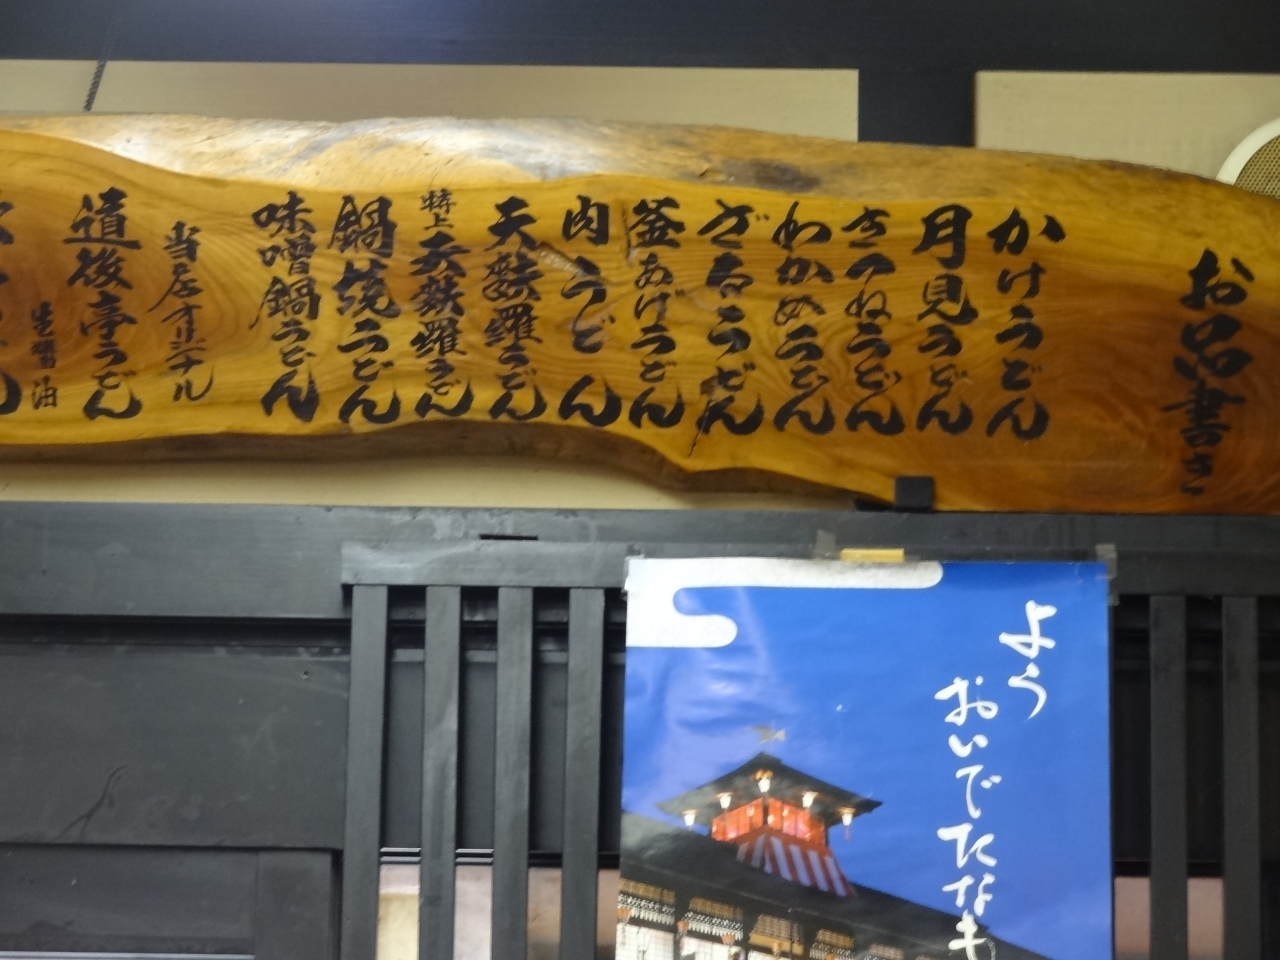 お品書き
かけうどん
月見うどん
きつねうどん
わかめうどん
ざるうどん
釜あげうどん
肉うどん
天麩羅うどん
特上天麩羅うどん
鍋焼うどん
味噌鍋うどん
当店オリジナル
道後亭うどん
生醤油
よう
おいでたなも